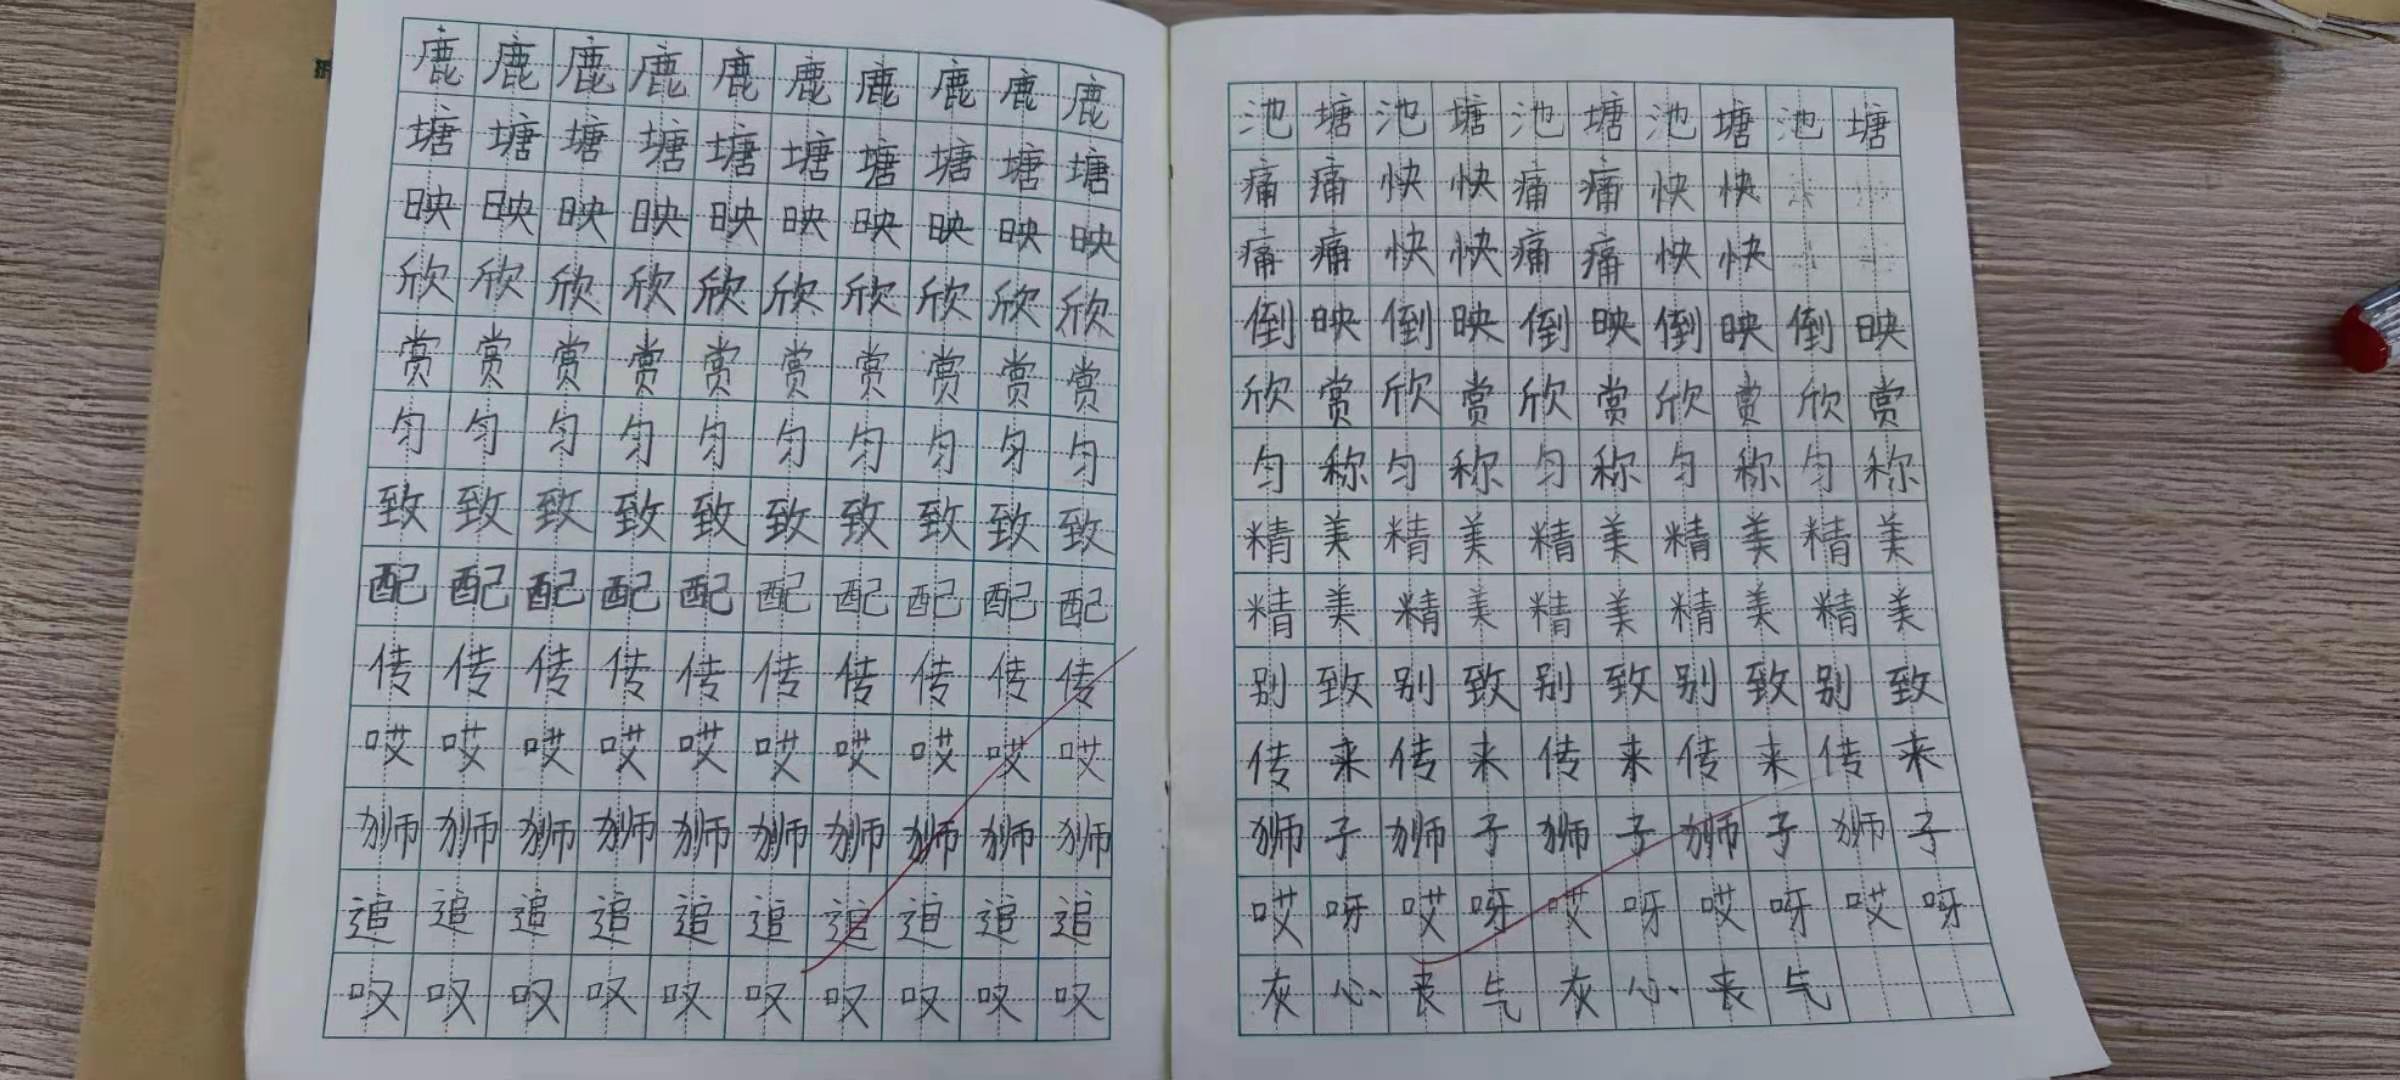 鹿鹿鹿鹿鹿鹿鹿鹿鹿鹿
塘塘塘塘塘塘塘塘塘塘
映映映映映映映映映映
欣欣欣欣欣欣欣欣欣欣
赏赏赏赏赏赏赏赏赏赏
匀匀匀匀匀匀匀匀匀匀
致致致致致致致致致致
配配配配配配配配配配
传传传传传传传传传传
哎哎哎哎哎哎哎哎哎哎
狮狮狮狮狮狮狮狮狮狮
追追追追追追追追追追
叹叹叹叹叹叹叹叹叹叹
池塘池塘池塘池塘池塘
痛痛快快痛痛快快
痛痛快快痛痛快快
倒映倒映倒映倒映倒映
欣赏欣赏欣赏欣赏欣赏
匀称匀称匀称匀称匀称
精美精美精美精美精美
精美精美精美精美精美
别致别致别致别致别致
传来传来传来传来传来
狮子狮子狮子狮子狮子
哎呀哎呀哎呀哎呀哎呀
灰心丧气灰心丧气